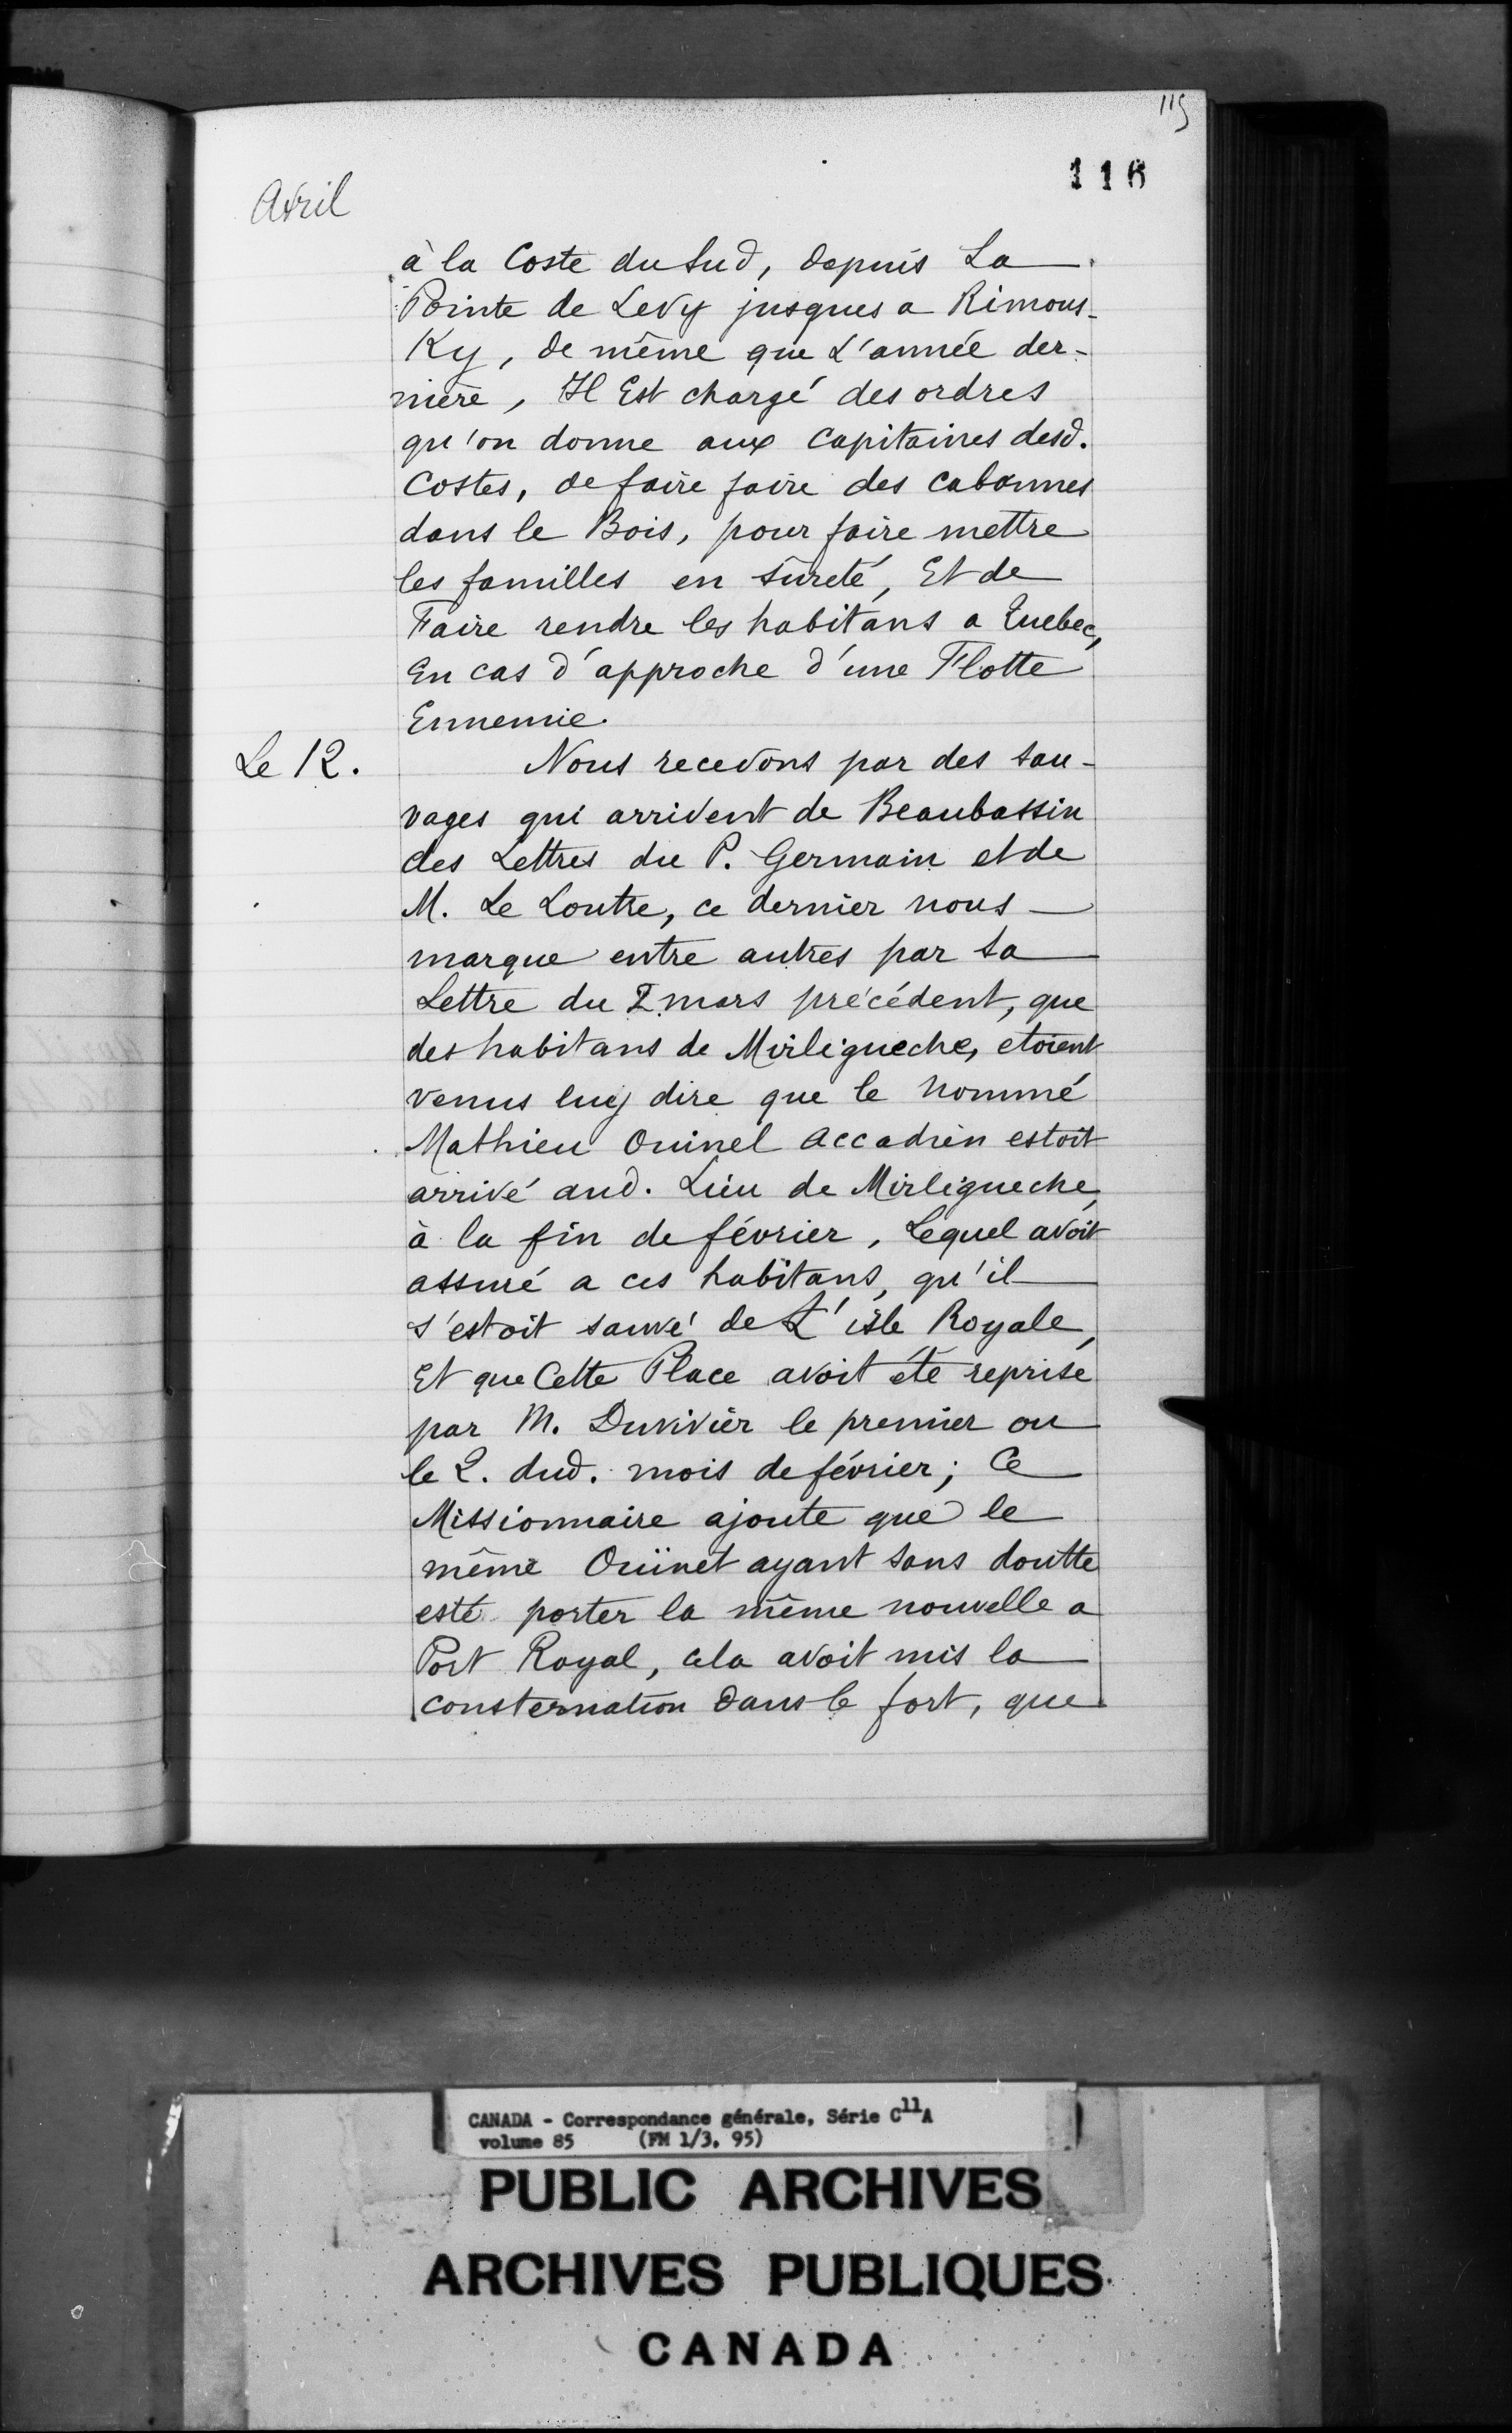 115
116
Avril
à la Coste du Sud, depuis La
Pointe de Levy jusques a Rimous-
Ky, de même que L'année der-
nière, Il Est chargé des ordres
qu'on donne aux Capitaines desd.
Costes, de faire faire des cabannes
dans le Bois, pour faire mettre
les familles en sûreté, Et de
Faire rendre les habitans a Quebec,
En cas d'approche d'une Flotte
Ennemie.
Le 12. Nous recevons par des sau-
vages qui arrivent de Beaubassin
des Lettres du P. Germain et de
M. Le Loutre, ce dernier nous
marque entre autres par sa
Lettre du mars précédent, que
des habitans de Mirligueche, etoient
venus luy dire que le nommé
Mathieu Ouinel accadien estoit
arrivé aud. Lieu de Mirligueche,
à la fin de février, Lequel avoit
assuré a ces habitans, qu'il
s'estoit sauvé de L'isle Royale,
Et que Cette Place avoit été reprise
par M. Duvivier le premier ou
le 2. dud. mois de février; Ce
Missionnaire ajoute que le
même Oüinet ayant sans doutte
esté porter la même nouvelle a
Port Royal, cela avoit mis la
consternation dans le fort, que
CANADA - Correspondance générale, Série C11A
volume 85 (FM 1/3, 95)
PUBLIC ARCHIVES
ARCHIVES PUBLIQUES
CANADA